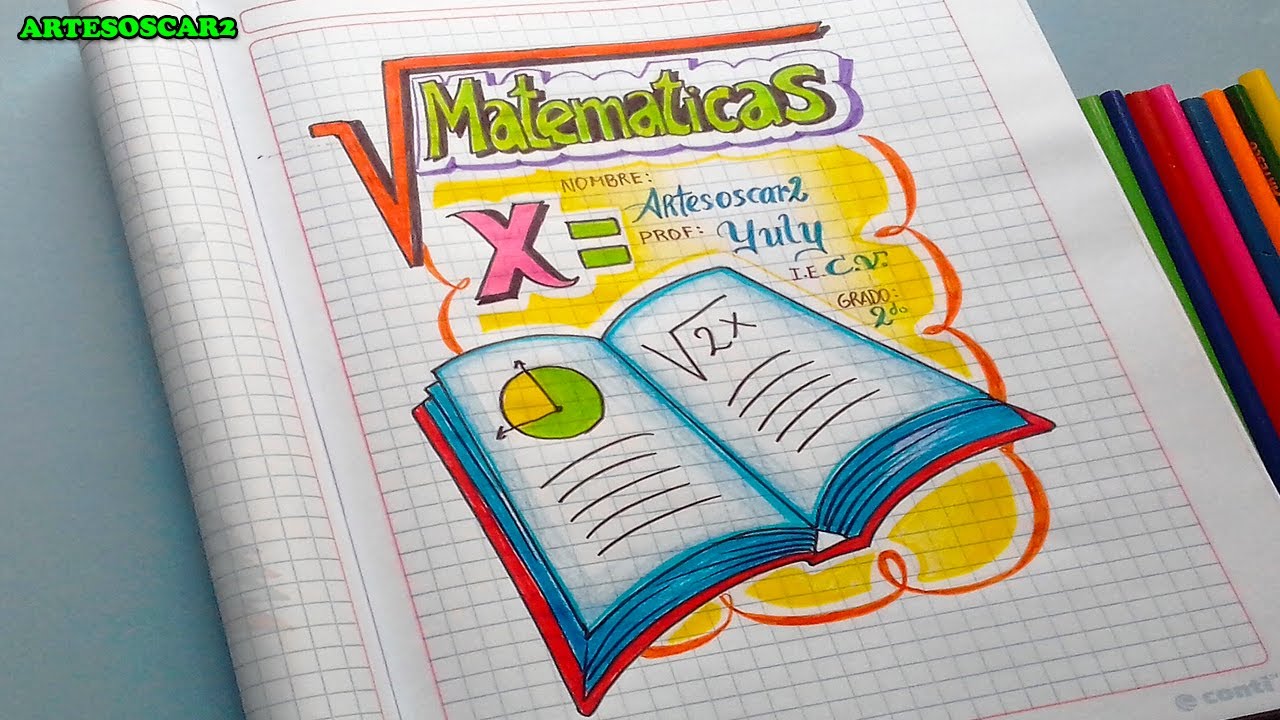 ARTESOSCAR2
Matematicas
NOMBRE:
Artesoscar2
X =
PROF: Yuly
I.E C.V.
GRADO:
2do
√2x
conti